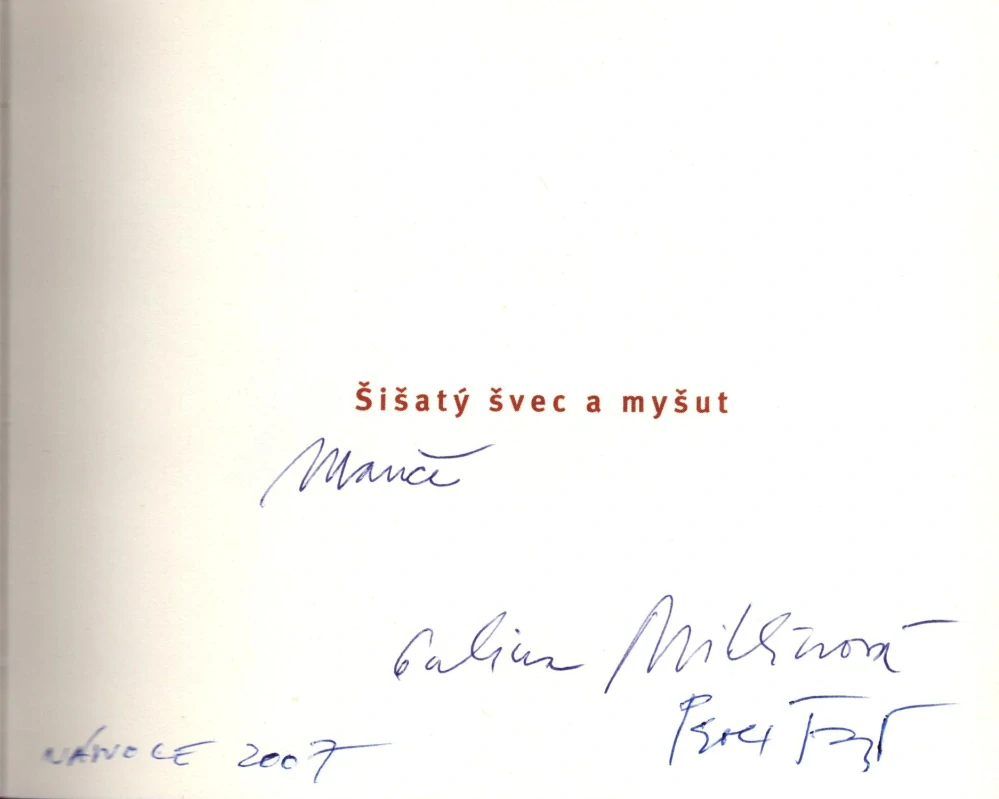 Šišatý švec a myšut
Manče
Galina Miklínová
Pavel Šrut
VÁNOCE 2007